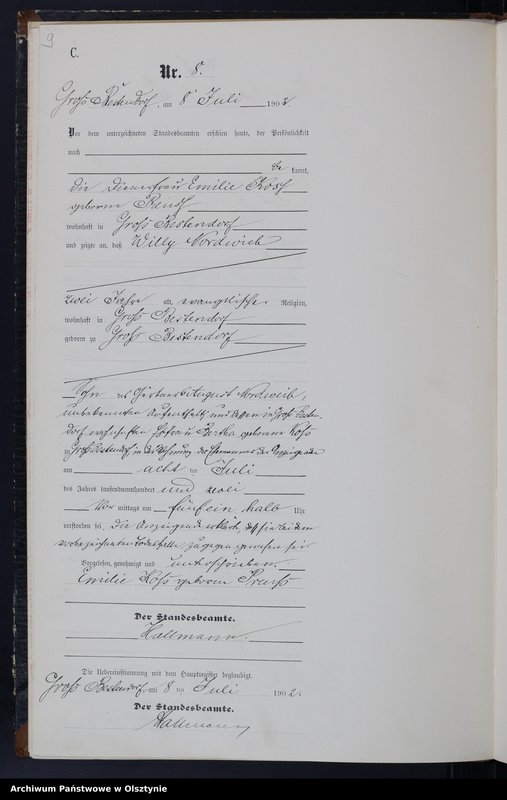 9
C.
Nr. 8.
Groß Bestendorf, am 8 Juli 1902
Vor dem unterzeichneten Standesbeamten erschien heute, der Persönlichkeit
nach
be kannt,
die Dienerfrau Emilie Koss
geborene Preuss
wohnhaft in Groß Bestendorf
und zeigte an, daß Willy Nordwich
zwei Jahre alt, evangelischer Religion,
wohnhaft in Groß Bestendorf
geboren zu Groß Bestendorf
Sohn des Gärtners August
unbekannten Aufenthalts und dessen in Groß Besten-
dorf Ehefrau Bertha geborene Koss
zu Groß Bestendorf, in der Wohnung des Ehemannes der Anzeigenden
am acht ten Juli
des Jahres tausend neunhundert und zwei
Vor mittags um fünf ein halb Uhr
verstorben sei. Die Anzeigende erklärte, daß sie bei dem
vorbezeichneten Todesfalle zugegen gewesen sei
Vorgelesen, genehmigt und unterschrieben.
Emilie Koss geborene Preuss
Der Standesbeamte.
Hallmann.
Die Uebereinstimmung mit dem Hauptregister beglaubigt.
Groß Bestendorf, am 8 ten Juli 1902.
Der Standesbeamte.
Hallmann
Archiwum Państwowe w Olsztynie